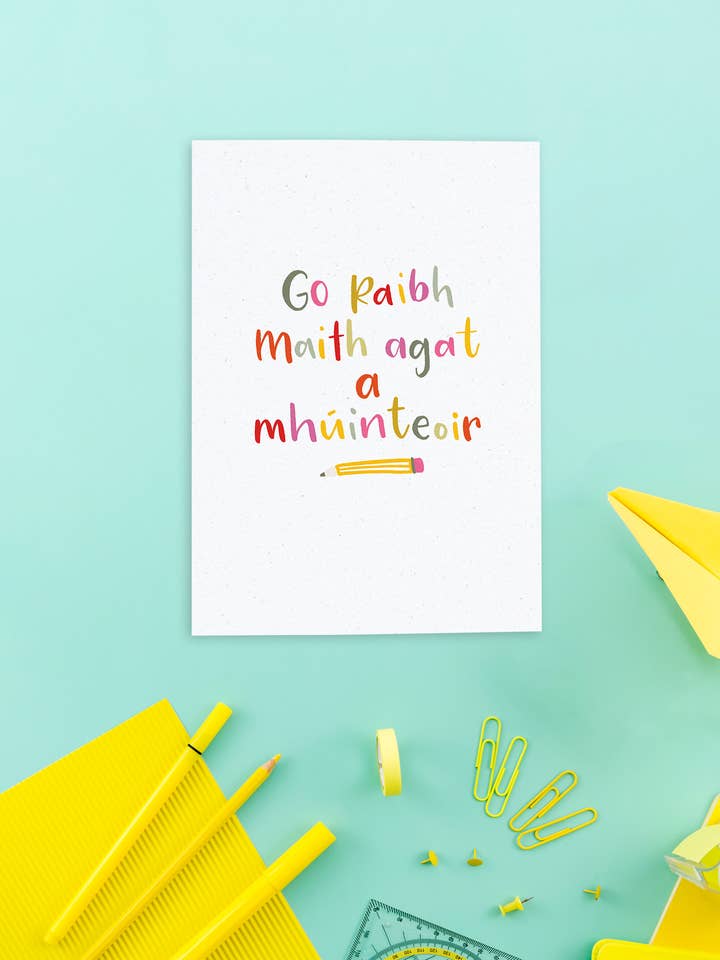 Go Raibh
Maith agat
a
mhúinteoir